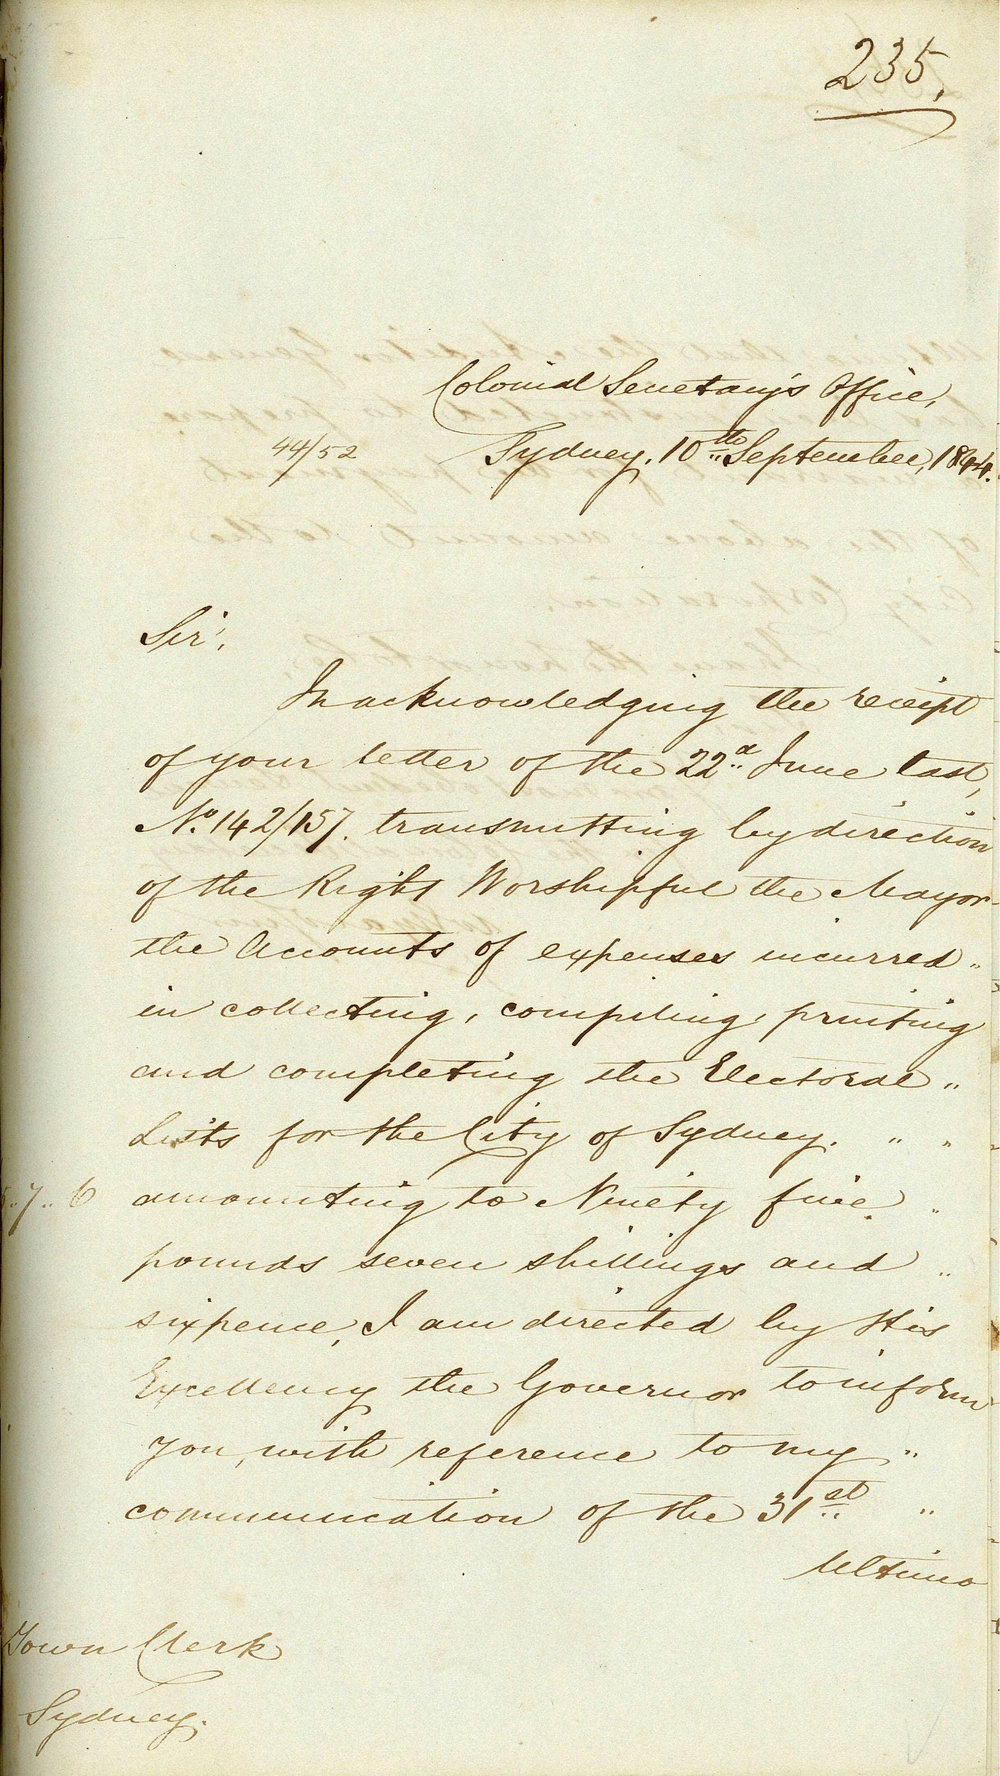 235.
Colonial Secretary's Office,
44/52
Sydney, 10th September, 1844.
Sir,
In acknowledging the receipt
of your letter of the 22d June last,
No. 142/157. transmitting by direction
of the Right Worshipful the Mayor
the Accounts of expenses incurred "
in collecting, compiling, printing
and completing the Electoral "
Lists for the City of Sydney. " "
7 .. 6 amounting to Ninety five "
pounds seven shillings and "
sixpence, I am directed by His
Excellency the Governor to inform
you, with reference to my "
communication of the 31st "
Ultimo
Town Clerk
Sydney.